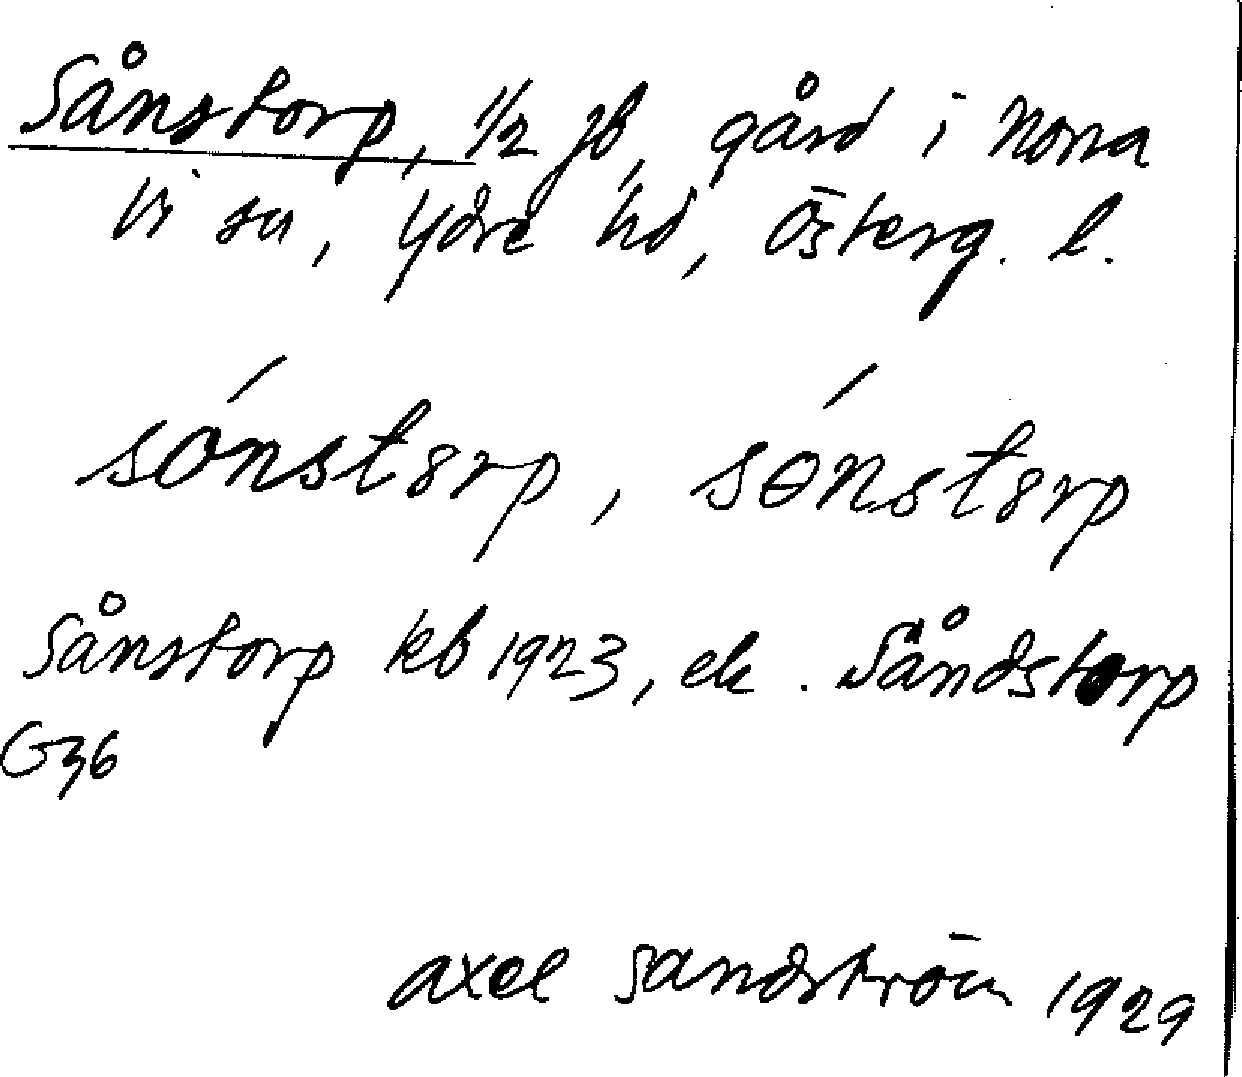 Sånstorp, 1/2 jb, gård i Norra
Vi sn, Ydre hd, Österg. l.
sónstorp, sónstorp
Sånstorp kb 1923, ek. Såndstorp
G36
Axel Sandström 1929